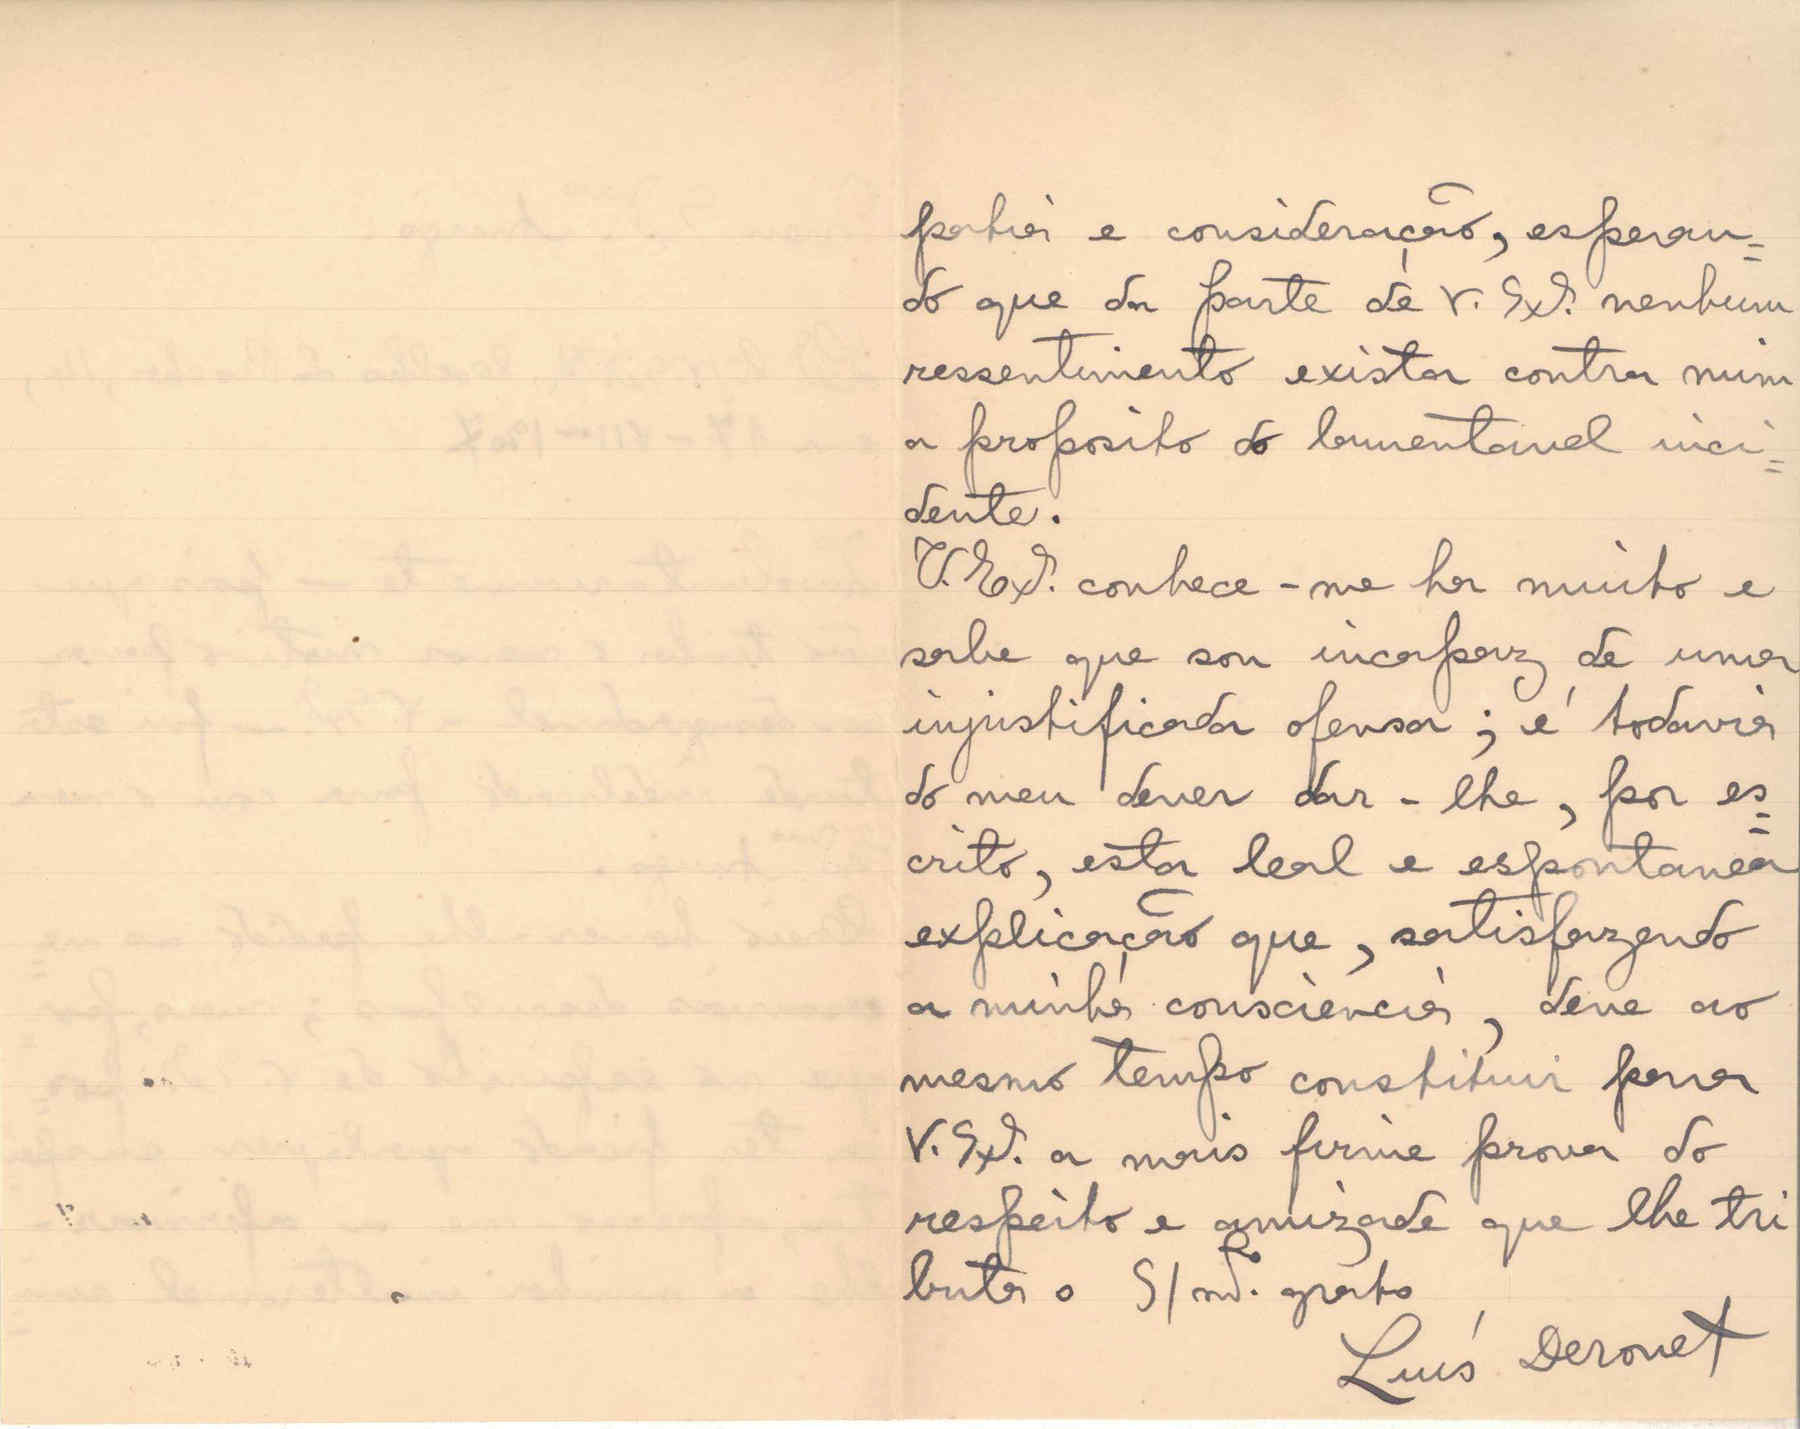 patia e consideração, esperan=
do que da parte de V. Exª. nenhum
ressentimento exista contra mim
a proposito do lamentavel inci=
dente.
V. Exª. conhece-me ha muito e
sabe que sou incapaz de uma
injustificada ofensa; é todavia
do meu dever dar-lhe, por es=
crito, esta leal e espontanea
explicação que, satisfazendo
a minha consciencia, deve ao
mesmo tempo constituir para
V. Exª. a mais firme prova do
respeito e amizade que lhe tri
buta o S/ mº. grato
Luís Derouet